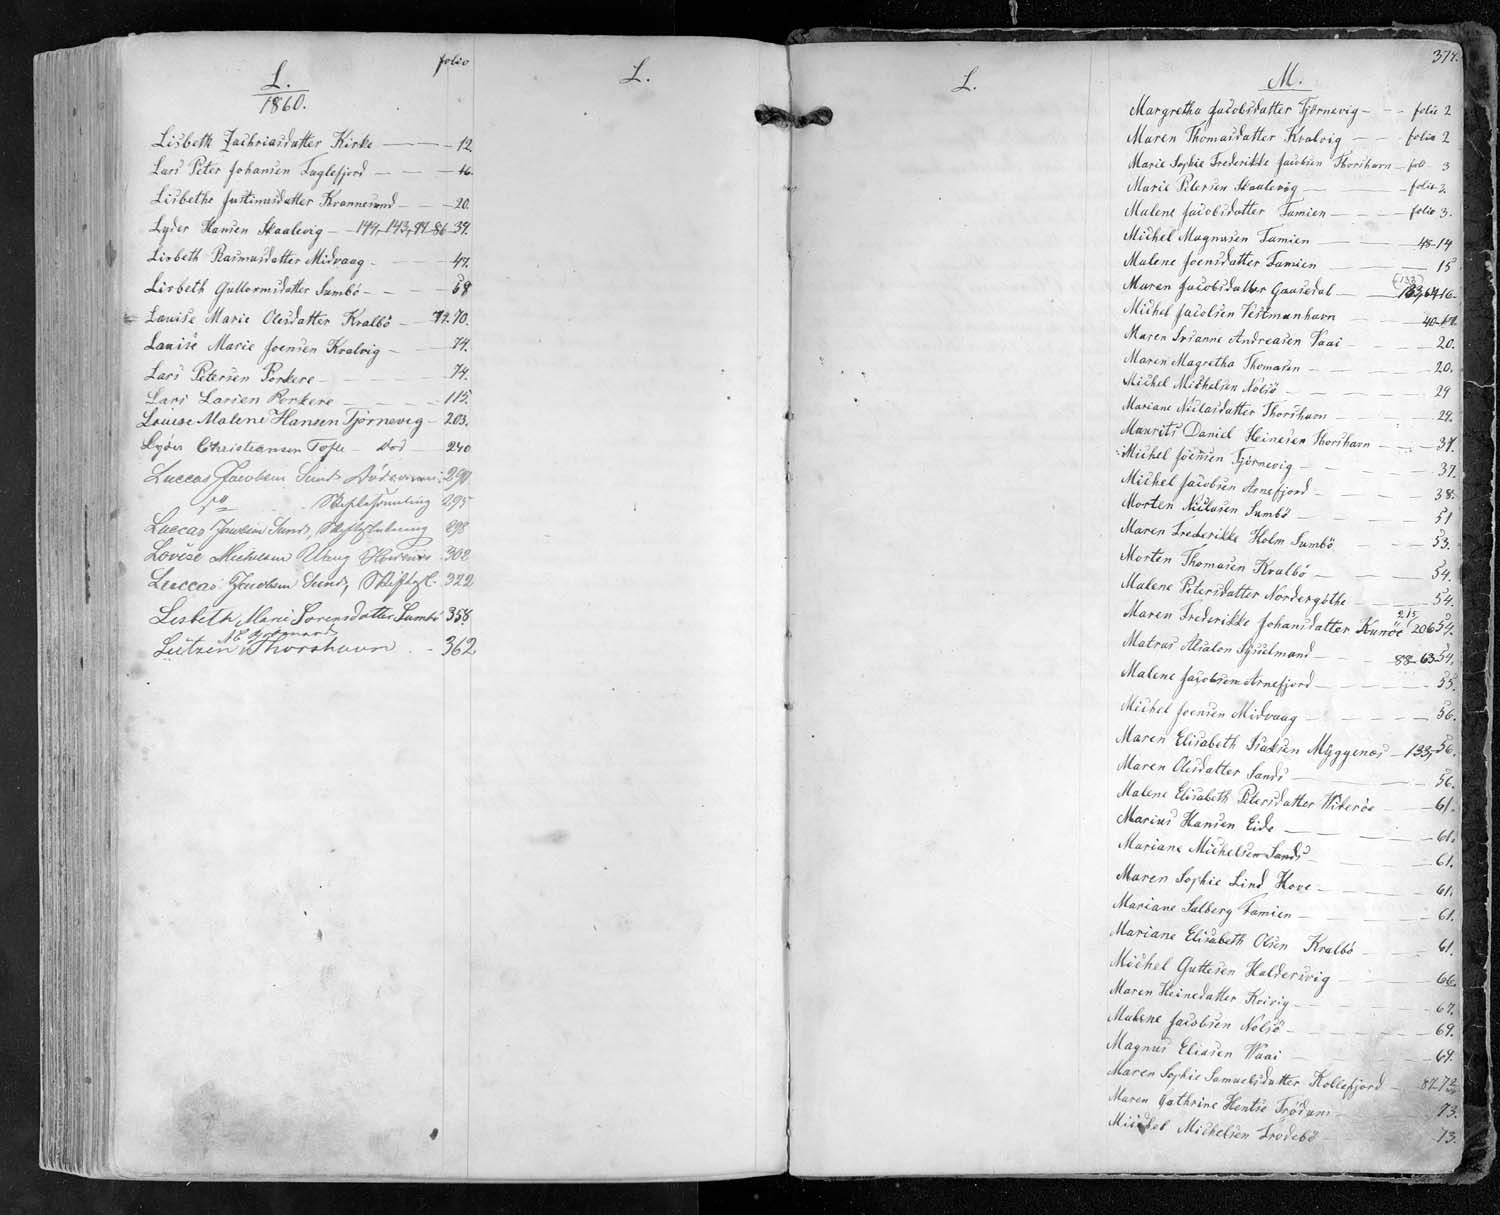 L.
1860.
folio
Lisbeth Zachriasdatter Kirke 12
Lars Peter Johansen Fuglefjord 16.
Lisbethe Justinusdatter Kvannesund 20.
Lyder Hansen Skaalevig 144, 143, 97-86-39.
Lisbeth Rasmusdatter Midvaag 47.
Lisbeth Guttormsdatter Sumbö 68
Lauise Marie Olesdatter Kralbö 77-70.
Lauise Marie Joensen Kvalvig 74.
Lars Petersen Porkere 74.
Lars Larsen Porkere 115.
Louise Malene Hansen Tjørneveg 203.
Lyder Christiansen Tofte død 240
Luccas Jacobsen Sund, 290
do Skiftesamling 295
Luccas Jacobsen Sund, Skifteslutning 298
Lovise Michelsen Waag 302
Luccas Jacobsen Sund, Skiftesl. 322
Lisbeth Marie Sørensdatter Sumbø 358
Lützen, Thorshavn 362
L.
L.
374.
M.
Margretha Jacobsdatter Tjörnevig folio 2
Maren Thomasdatter Kvalvig folio 2
Marie Sophie Frederikke Jacobsen Thorshavn fol 3
Marie Petersen Skaalevög folio 2.
Malene Jacobsdatter Famien folio 3.
Michel Magnusen Famien 48-14
Malene Joensdatter Famien 15
Maren Jacobsdatter Gaasedal (133) 133,64-16-
Michel Jacobsen Vestmanhavn 40-17
Maren Susanne Andreasen Vaai 20.
Maren Magretha Thomasen 20.
Michel Mickelsen Nolsö 29
Mariane Niclasdatter Thorshavn 29.
Maurits Daniel Heinesen Thorshavn 37.
Michel Joensen Tjørnevig 37.
Michel Jacobsen Arnefjord 38.
Morten Niclasen Sumbö 51
Maren Frederikke Holm Sumbö 53.
Morten Thomasen Kralbö 54.
Malene Petersdatter Nordergöthe 54.
Maren Frederikke Johansdatter Kunöe 215 206 54.
Matras Absalon Sysselmand 88-63-54.
Malene Jacobsen Arnefjord 55.
Michel Joensen Midvaag 56.
Maren Elisabeth Isaksen Myggenæs 133, 56.
Maren Olesdatter Sands 56.
Malene Elisabeth Petersdatter Viberöe 61.
Marius Hansen Eide 61.
Mariane Michelsen Sands 61.
Maren Sophie Lind Hove 61.
Mariane Salberg Famien 61.
Mariane Elisabeth Olsen Kralbö 61.
Michel Guttesen Haldersvig 66.
Maren Heinedatter Koivig 67.
Malene Jacobsen Nolsö 69.
Magnus Eliasen Vaai 69.
Maren Sophie Samuelsdatter Kollefjord 87-72
Maren Cathrine Hentse Trödum 73.
Michel Mickelsen Frodebö 73.